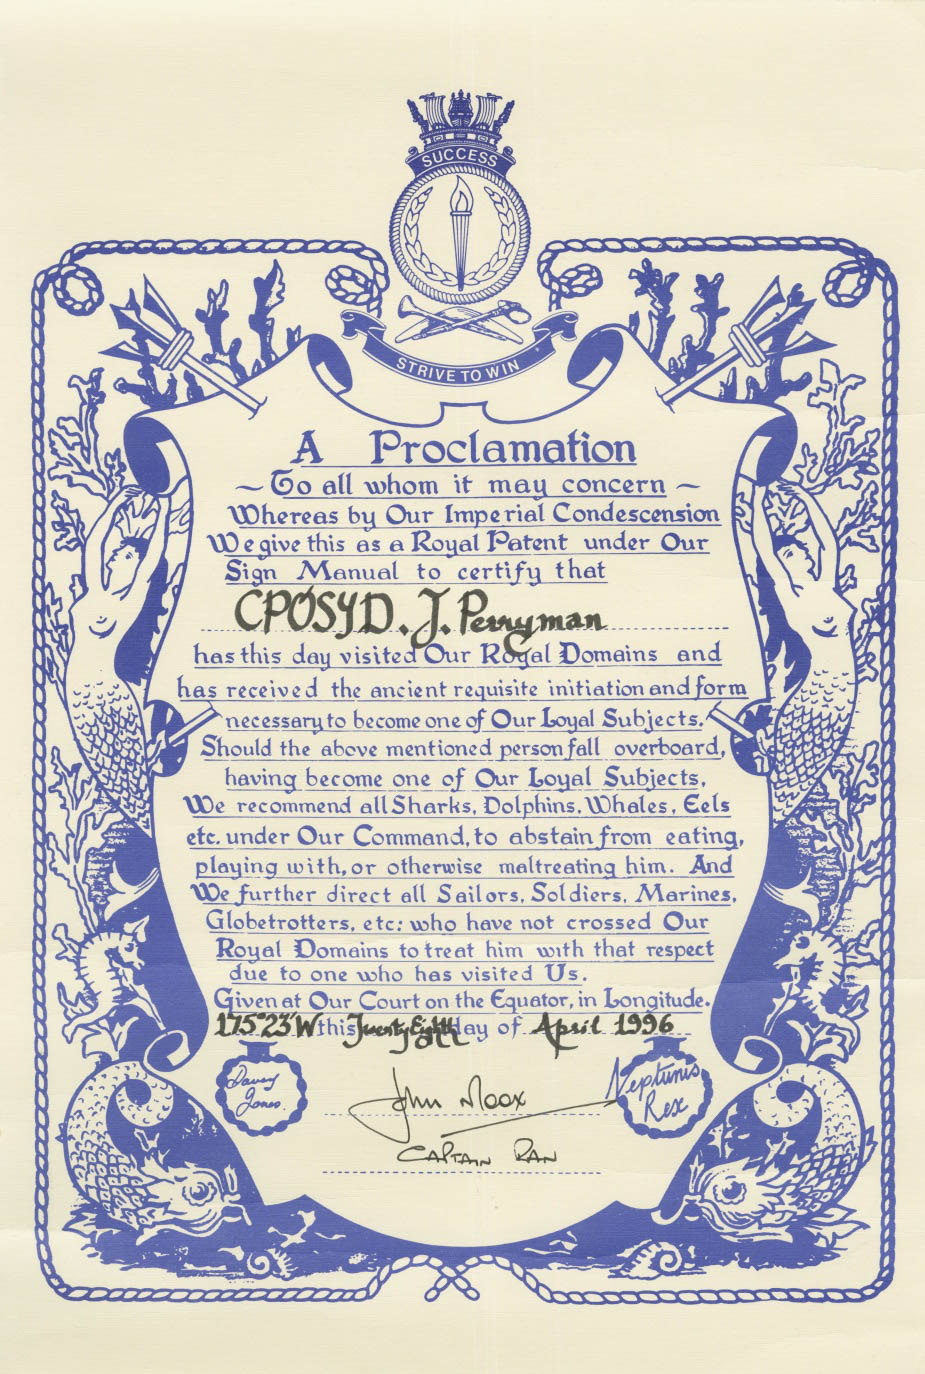 SUCCESS
STRIVE TO WIN
A Proclamation
~ To all whom it may concern ~
Whereas by Our Imperial Condescension
We give this as a Royal Patent under Our
Sign Manual to certify that
CPOSYD. J. Perryman
has this day visited Our Royal Domains and
has received the ancient requisite initiation and form
necessary to become one of Our Loyal Subjects.
Should the above mentioned person fall overboard,
having become one of Our Loyal Subjects,
We recommend all Sharks, Dolphins, Whales, Eels
etc. under Our Command, to abstain from eating,
playing with, or otherwise maltreating him. And
We further direct all Sailors, Soldiers, Marines,
Globetrotters, etc: who have not crossed Our
Royal Domains to treat him with that respect
due to one who has visited Us.
Given at Our Court on the Equator, in Longitude.
175°23'W this Twenty Eighth day of April 1996
Davey Jones
John Moox
Neptunis Rex
CAPTAIN RAN